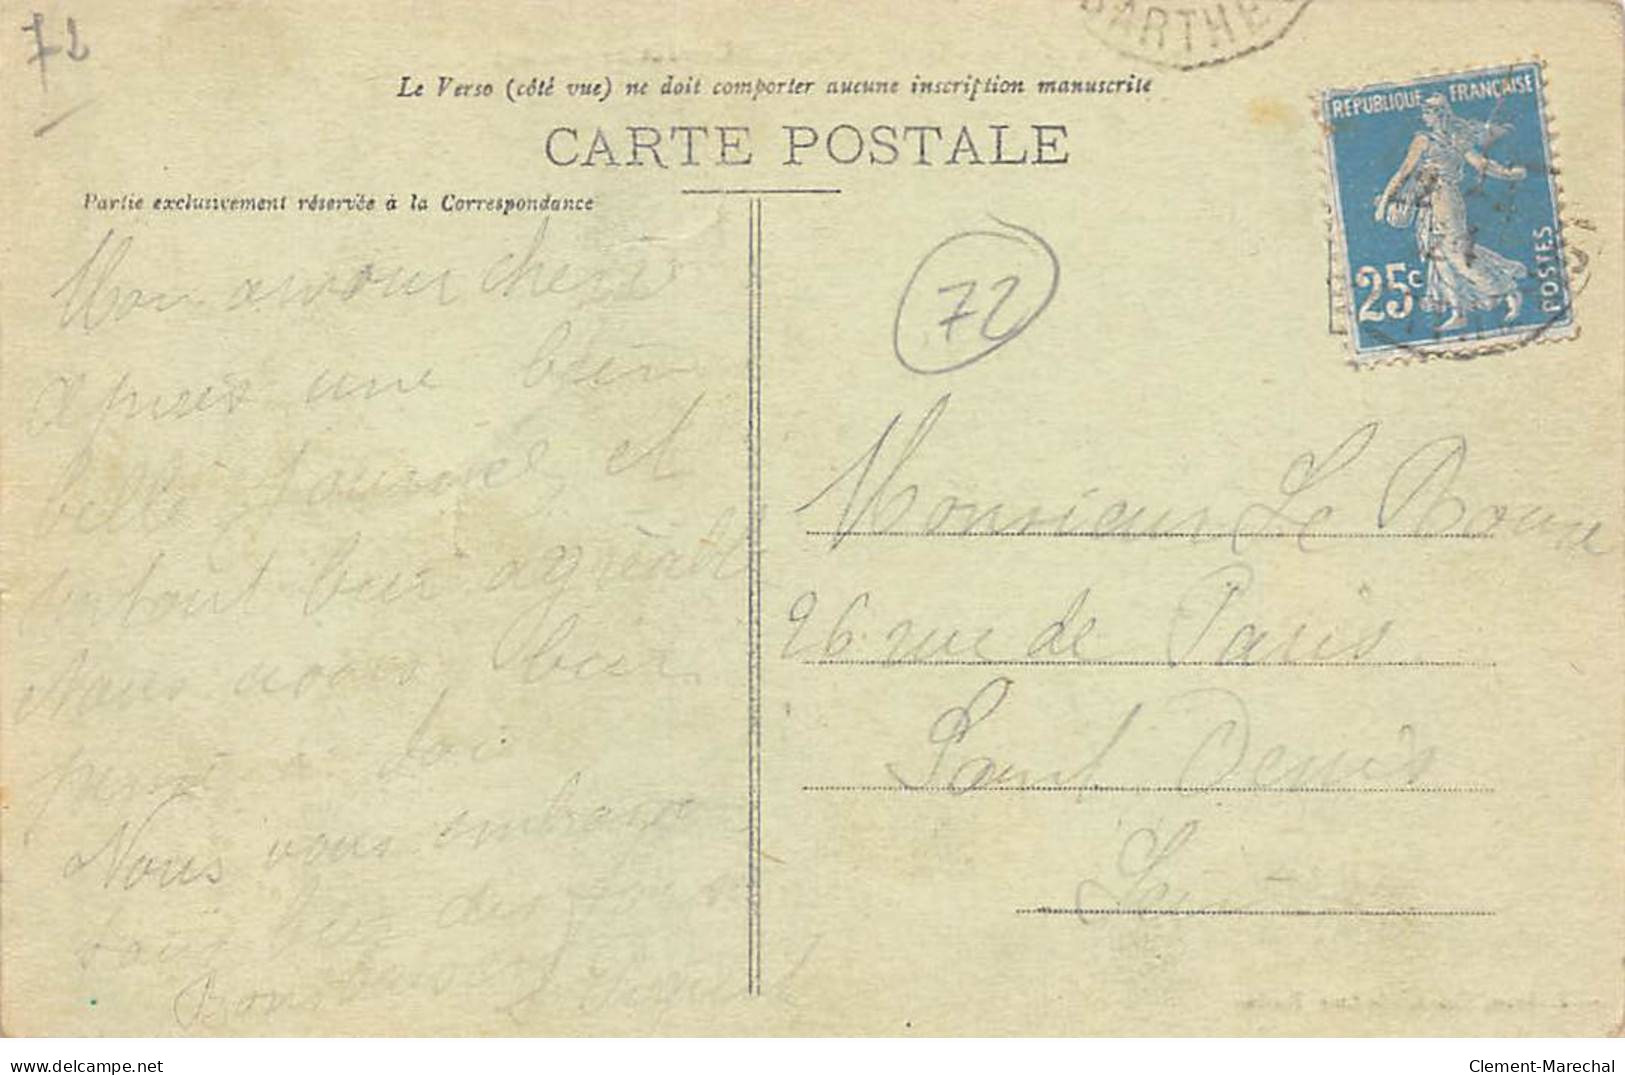 72
SARTHE
Le Verso (côté vue) ne doit comporter aucune inscription manuscrite
CARTE POSTALE
Partie exclusivement réservée à la Correspondance
REPUBLIQUE FRANÇAISE
25c
POSTES
72
Mon amour cheri
apres une bien
belle et
surtout bien
Nous avons bien
pensé a toi
Nous vous
tous les deux
Bons baisers
Monsieur Le Roux
26 rue de Paris
Saint Denis
Seine
delcampe.net
Clement-Marechal